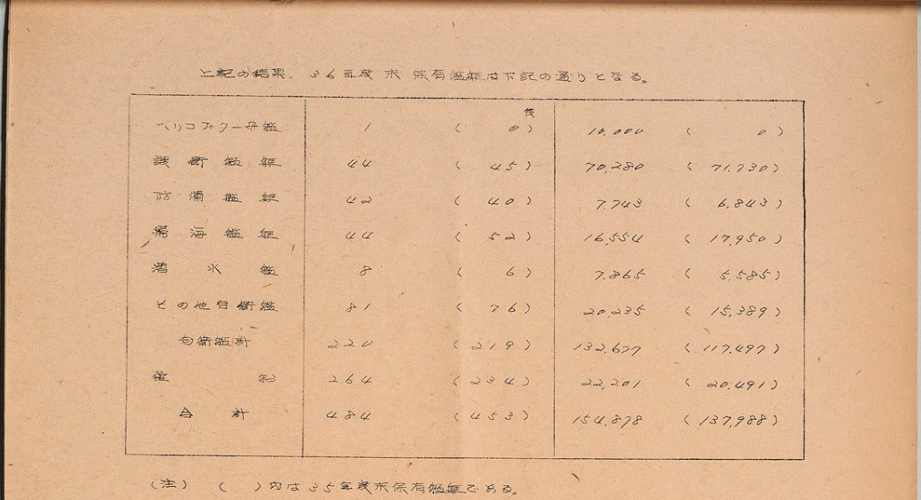 上記の結果、36年度末保有艦艇は下記の通りとなる。
隻
ヘリコプター母艦 1 ( 0 ) 10,000 ( 0 )
護衛艦艇 44 ( 45 ) 70,280 ( 71,730 )
防備艦艇 42 ( 40 ) 7,743 ( 6,843 )
掃海艦艇 44 ( 52 ) 16,554 ( 17,950 )
潜水艦 8 ( 6 ) 7,865 ( 5,585 )
その他自衛艦 81 ( 76 ) 20,235 ( 15,389 )
自衛艦計 220 ( 219 ) 132,677 ( 117,497 )
264 ( 234 ) 22,201 ( 20,491 )
合計 484 ( 453 ) 154,878 ( 137,988 )
(注) ( )内は35年度末保有艦艇である。